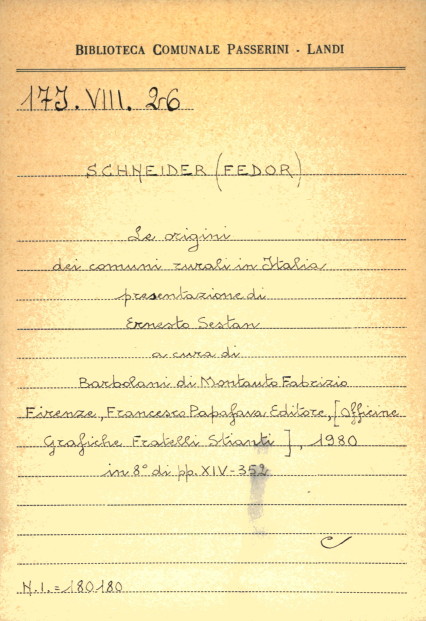 BIBLIOTECA COMUNALE PASSERINI - LANDI
17J. VIII. 26
SCHNEIDER (FEDOR)
Le origini
dei comuni rurali in Italia
presentazione di
Ernesto Sestan
a cura di
Barbolani di Montauto Fabrizio
Firenze, Francesco Papafava Editore, [Officine
Grafiche Fratelli Stianti], 1980
in 8° di pp. XIV-352
N.I. = 180180